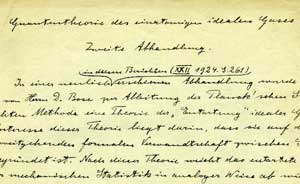 Quantentheorie des einatomigen idealen Gases
Zweite Abhandlung.
in diesen Berichten (XXII 1924. S. 261)
In einer neulich erschienenen Abhandlung wurde
von Herrn D. Bose zur Ableitung der Planck'schen S
hten Methode eine Theorie der "Entartung" idealer G
nteresse dieser Theorie liegt darin, dass sie auf d
weitgehenden formalen Verwandtschaft zwischen S
egründet ist. Nach dieser Theorie
chanischen Statistik in analoger Weise ab wie